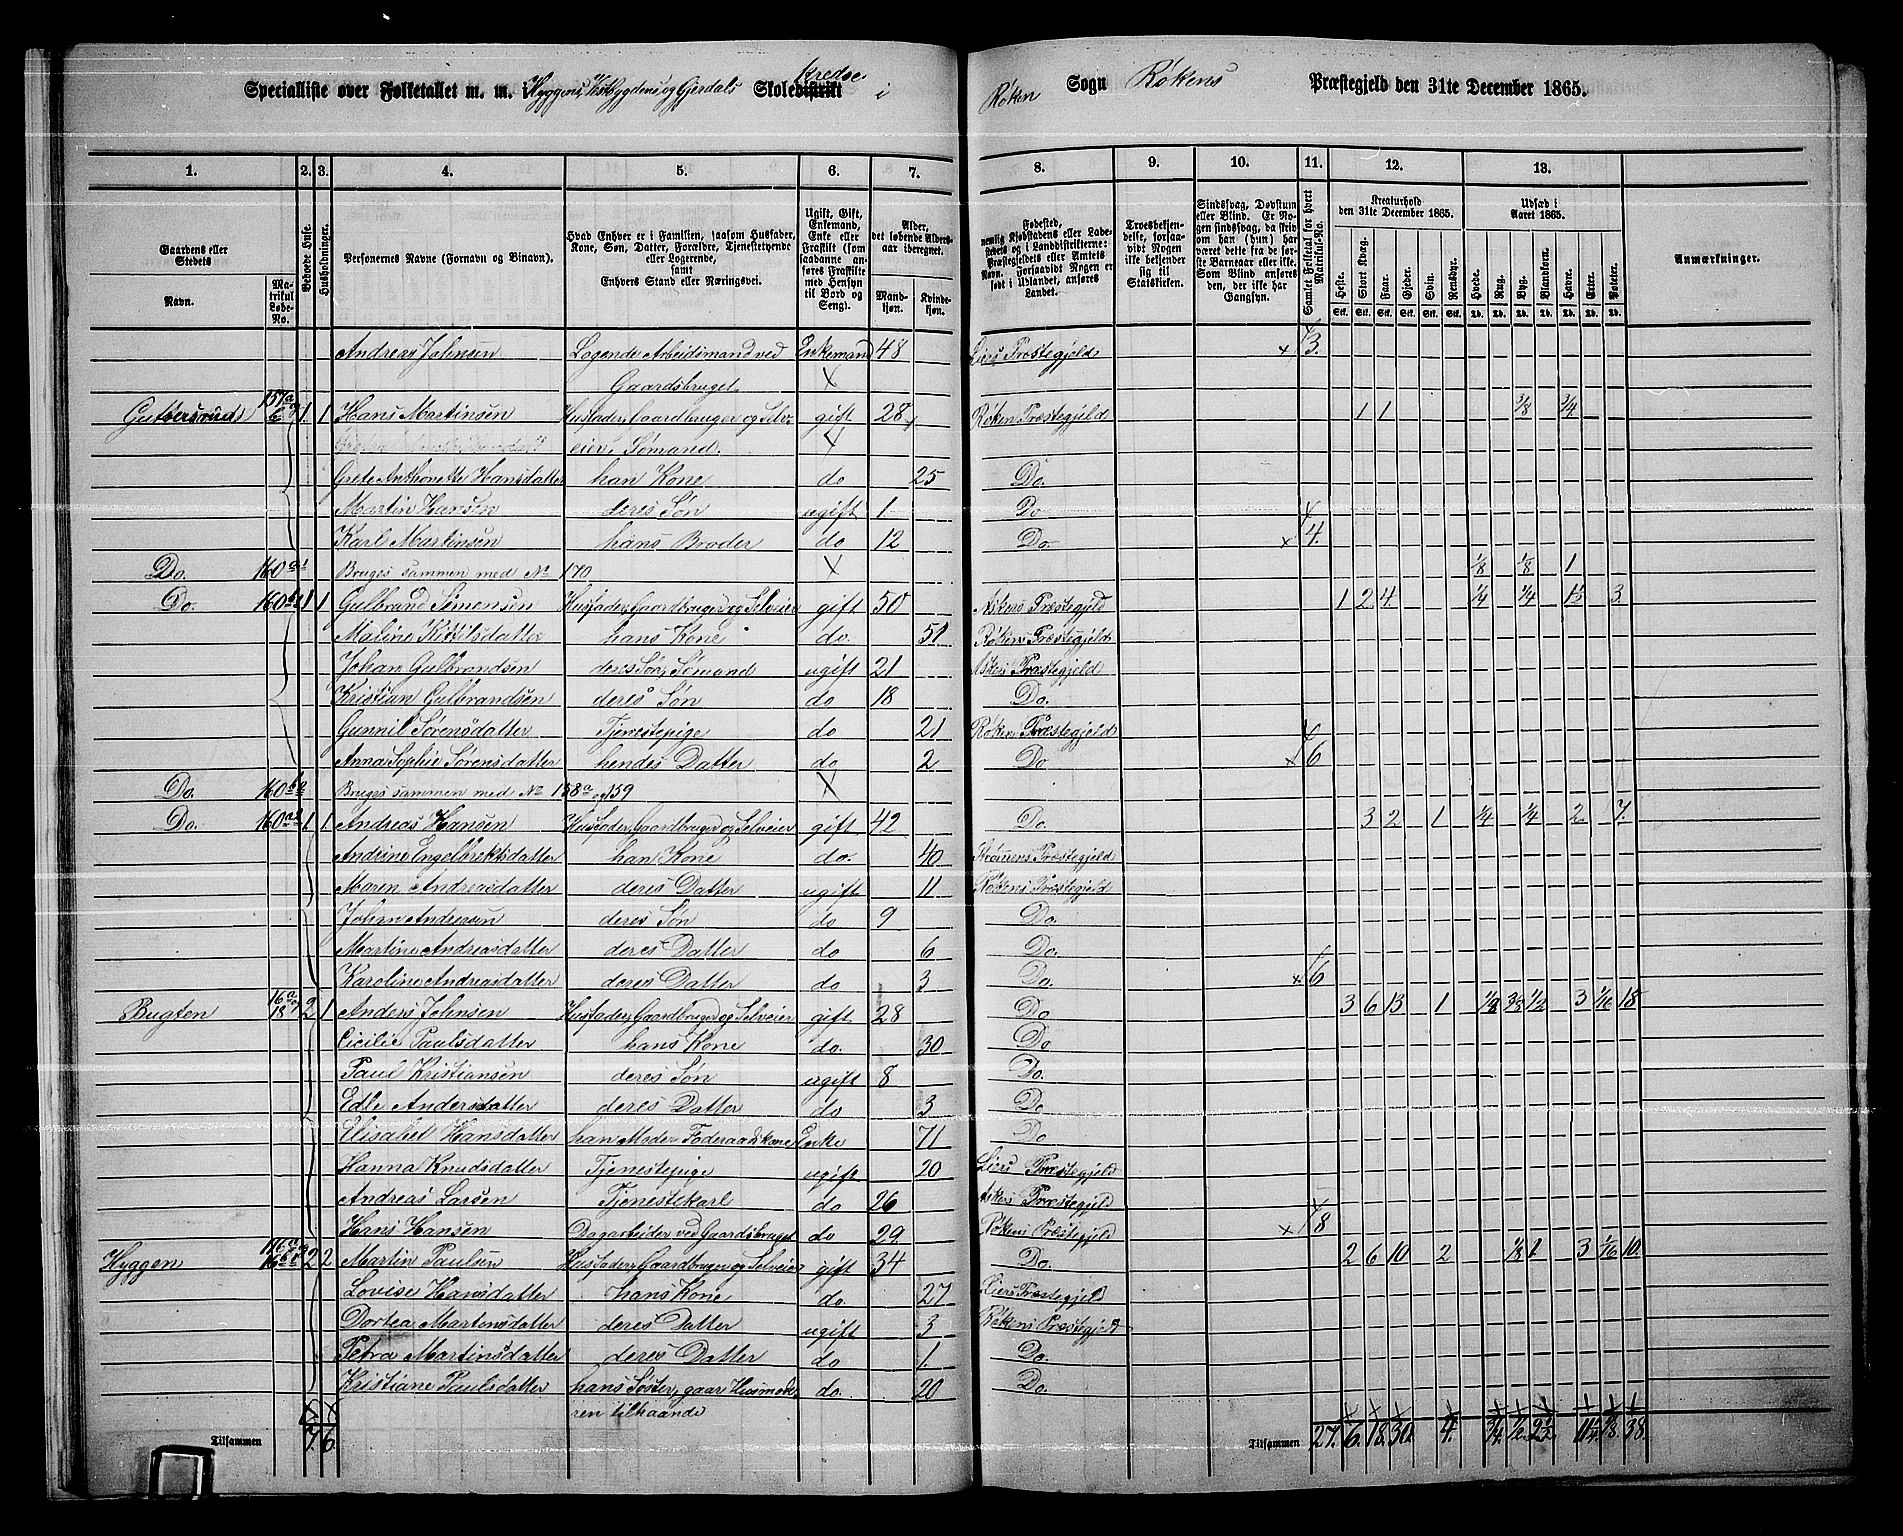 Specialliste over Folketallet m. m. i Hyggens, og Gjerdals Skoledistrikt kredse i Røken Sogn Røkens Præstegjeld den 31te December 1865.
1. 2. 3. 4. 5. 6. 7. 8. 9. 10. 11. 12. 13.
Gaardens eller Stedets Navn. Matrikul Løbe-No. Beboede Huse. Husholdninger. Personernes Navne (Fornavn og Binavn). Hvad Enhver er i Familien, saasom Husfader, Kone, Søn, Datter, Forældre, Tjenestetyende eller Logerende, samt Enhvers Stand eller Næringsvei. Ugift, Gift, Enkemand, Enke eller Fraskilt (som saadanne anføres Fraskilte med Hensyn til Bord og Seng). Alder, det løbende Alders-aar iberegnet. Mandkjøn. Kvindekjøn. Fødested, nemlig Kjøbstadens eller Ladestedets og i Landdistrikterne: Præstegjeldets eller Amtets Navn. Forsaavidt Nogen er født i Udlandet, anføres Landet. Troesbekjendelse, forsaavidt Nogen ikke bekjender sig til Statskirken. Sindssvag, Døvstum eller Blind. Er Nogen sindssvag, da skrives om han (hun) har været dette fra de første Barneaar eller ikke. Som Blind anføres den, der ikke har Gangsyn. Samlet Folketal for hvert Matrikul-No. Kreaturhold den 31te December 1865. Heste. Stort Kvæg. Faar. Gjeder. Svin. Rensdyr. Udsæd i Aaret 1865. Hvede. Rug. Byg. Blandkorn. Havre. Erter. Poteter. Anmærkninger.
Andreas Johnsen Logende Arbeidsmand ved Enkemand 48 Liers Præstegjeld × 3.
Gaardsbruget ×
157a 1 1 Hans Martinsen Husfader, Gaardbruger og Selv- gift 28 Røken Præstegjeld 1 1 3/8 3/4
eier, Sømand. ×
Grete Anthonette Hansdatter han Kone do 25 Do.
Martin Hansen deres Søn ugift 1 Do
Karl Martinsen hans Broder do 12 Do. × 4.
Do. 160 Bruges sammen med No 170 × 1/8 1/8 1
Do. 160 1 1 Gulbrand Simensen Husfader, Gaardbruger og Selveier gift 50 Askers Præstegjeld 1 2 4 1/4 1/4 3.
Maline Kittilsdatter hans Kone do. 51 Røkens Præstegjeld
Johan Gulbrandsen deres Søn, Sømand ugift 21 Askers Præstegjeld
Kristian Gulbrandsen deres Søn do 18 Do.
Gunnil Sørensdatter Tjenestepige do 21 Røkens Præstegjeld
Anna Sophie Sørensdatter hendes Datter do 2 Do × 6
Do. 160 Bruges sammen med No 158a og 159 ×
Do. 160 1 1 Andreas Hansen Husfader, Gaardbruger og Selveier gift 42 Do. 3 2 1 1/4 1/4 2 7.
Andrine Engelbrektsdatter han Kone do. 40 Præstegjeld
Maren Andreasdatter deres Datter ugift 11 Røkens Præstegjeld
Johan Andreasen deres Søn do 9 Do
Martine Andreasdatter deres Datter do 6 Do.
Karoline Andreasdatter deres Datter do 3 Do. × 6
Bugten 2 1 Anders Johnsen Husfader, Gaardbruger og Selveier gift 28 Do 3 6 13 1 1/8 1/2 3 1/16 18
Cicilie Paulsdatter hans Kone do. 30 Do
Paul Kristiansen deres Søn ugift 8 Do.
Edle Andersdatter deres Datter do 3 Do
Elisabet Hansdatter han Moder Føderaadskone Enke 71 Do
Hanna Knudsdatter Tjenestepige ugift 20 Liers Præstegjeld
Andreas Larsen Tjenestekarl do 26 Askers Præstegjeld
Hans Hansen Dagarbeider ved Gaardsbruget do 29 Røkens Præstegjeld × 8
Hyggen 2 2 Martin Paulsen Husfader, Gaardbruger og Selveier gift 34 Do. 2 6 10 2 1/8 1 3 1/16 10
Lovise Hansdatter hans Kone do. 27 Liers Præstegjeld
Dortea Martinsdatter deres Datter ugift 3 Røkens Præstegjeld
Petra Martinsdatter deres Datter do 1. Do.
Kristiane Paulsdatter hans Søster, gaar Husmode- do. 20 Do.
ren tilhaande
Tilsammen 7 6 Tilsammen 27. 6 18 30. 4. 3/4 38.